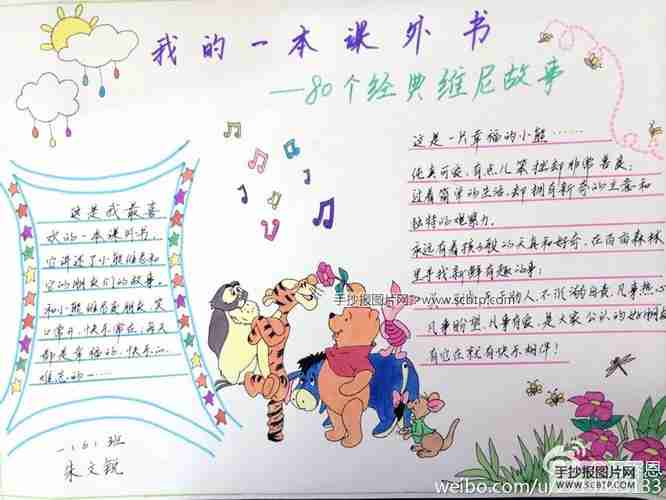 我的一本课外书
—80个经典维尼故事
这是我最喜
欢的一本课外书。
它讲述了小熊维尼和
它的朋友们的故事。
和小熊维尼度朋友笑
口常开,快乐常在,每天
都是幸福的、快乐的、
难忘的……
一(6)班
朱文锐
这是一片幸福的小熊……
纯真可爱,有点儿笨拙却非常善良;
过着简单的生活,却拥有新奇的主意和
独特的观察力。
永远有着孩子般的天真和好奇,在百亩森林
里寻找新鲜有趣的事;
人,不沉溺自我,凡事热心
凡事盼望,凡事有爱,是大家公认的好朋友
有它在就有快乐相伴!
手抄报图片网 www.scbtp.com
手抄报图片网
WWW.SCBTP.COM
weibo.com/u/
33
恩